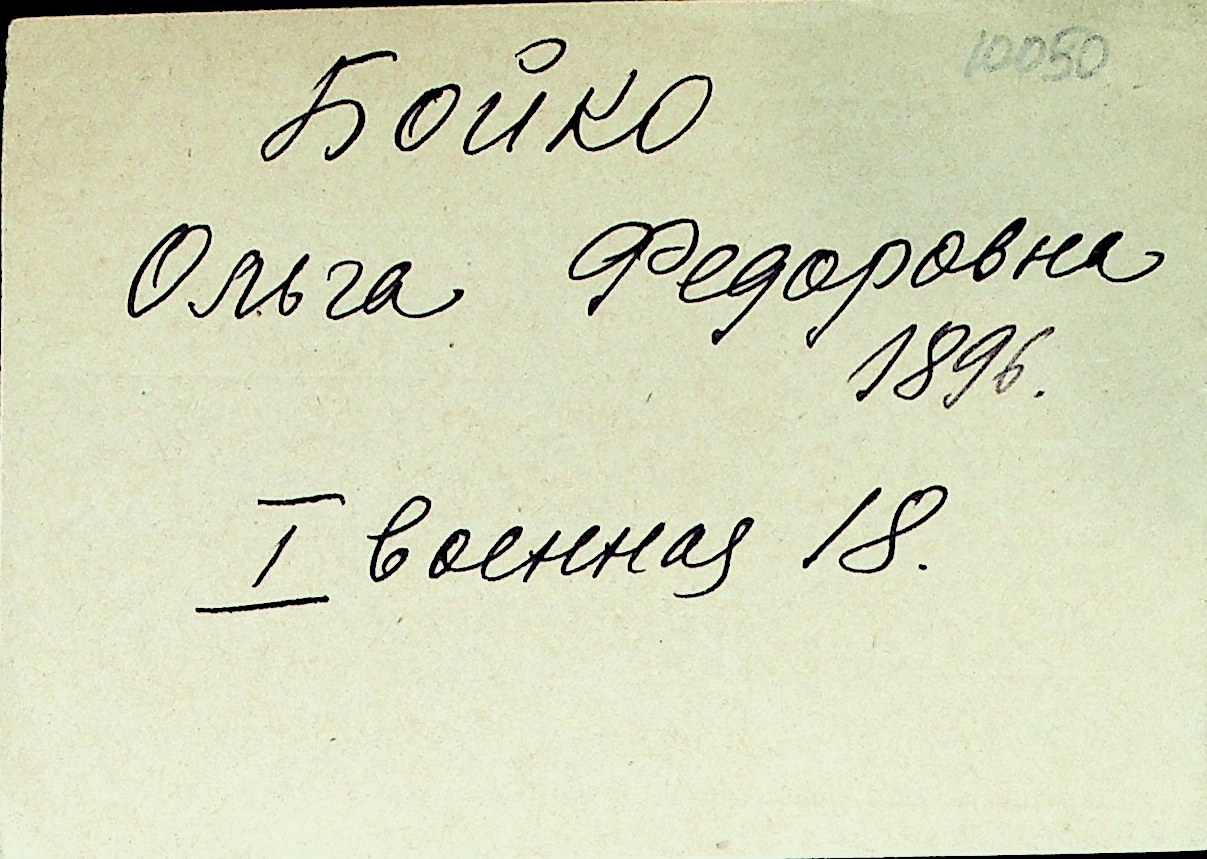 10050
Бойко
Ольга Федоровна
1896.
I военная 18.